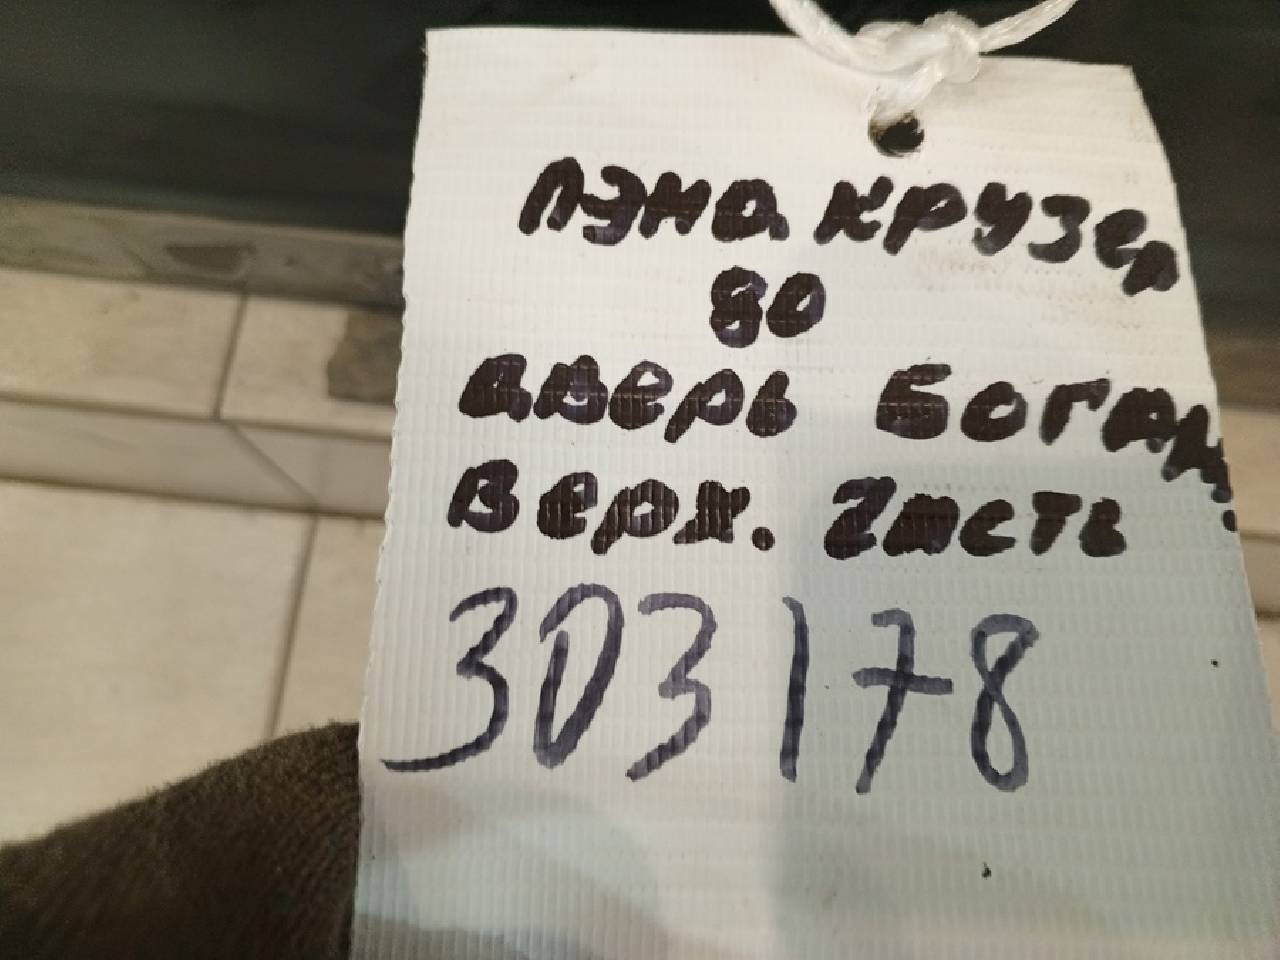 Лэнд Крузер
80
дверь Багаж.
верх. часть
303178